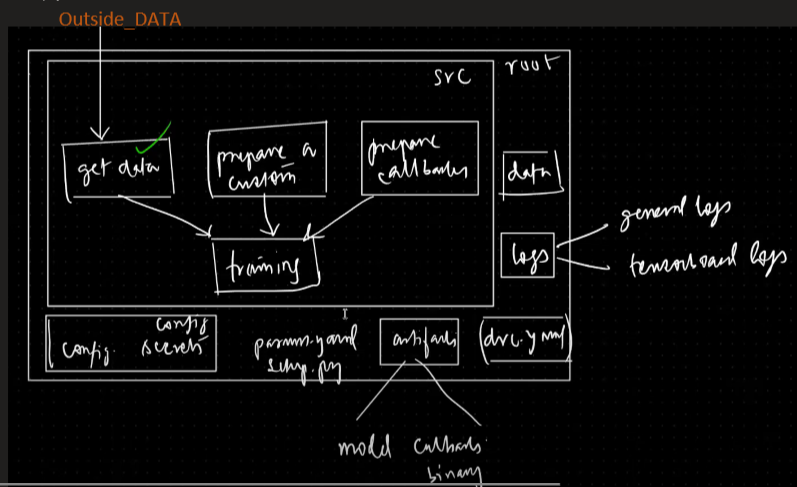 Outside_DATA
root
src
get data
prepare a
custom
prepare
callbacks
data
training
logs
general logs
tensorboard logs
config
config. secrets
params.yaml
setup.py
artifacts
dvc.yaml
model callbacks
binary